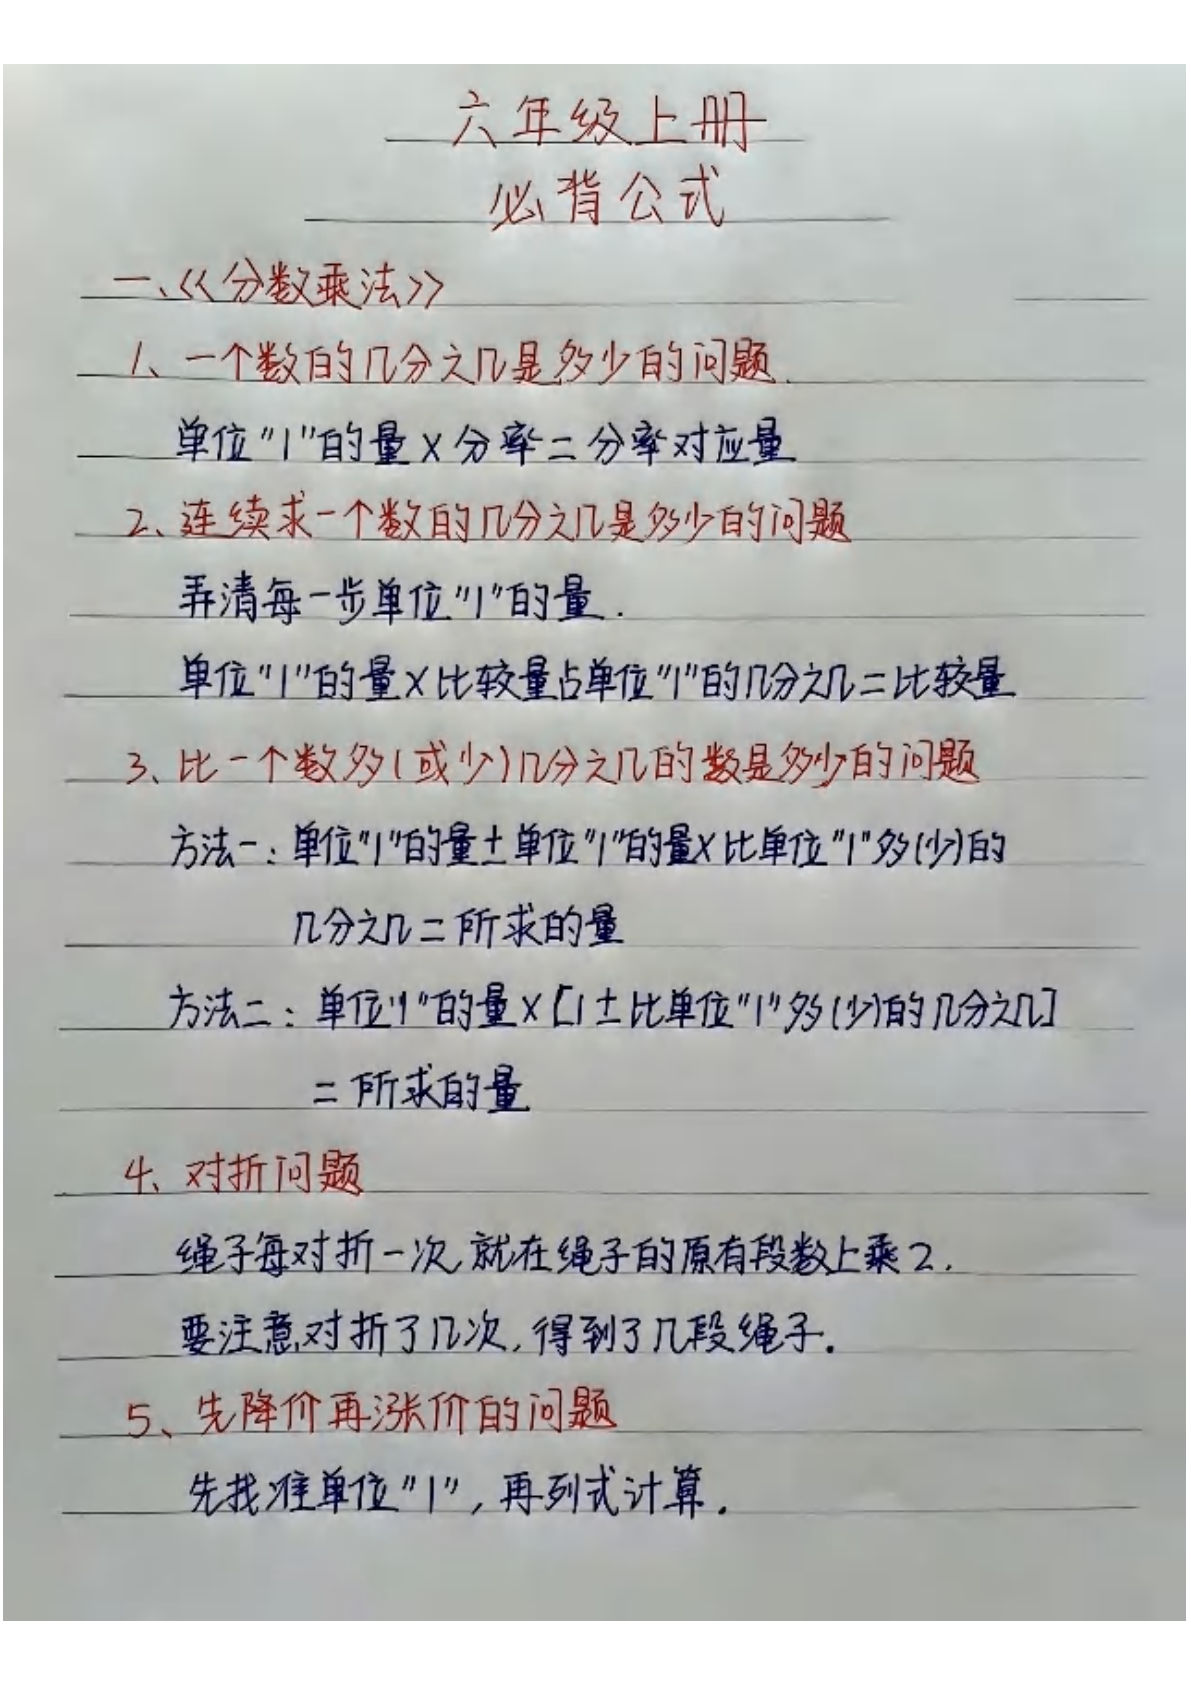 六年级上册
必背公式
一、《分数乘法》
1、一个数的几分之几是多少的问题.
单位"1"的量×分率=分率对应量
2、连续求一个数的几分之几是多少的问题
弄清每一步单位"1"的量.
单位"1"的量×比较量占单位"1"的几分之几=比较量
3、比一个数多(或少)几分之几的数是多少的问题
方法一:单位"1"的量±单位"1"的量×比单位"1"多(少)的
几分之几=所求的量
方法二:单位"1"的量×[1±比单位"1"多(少)的几分之几]
=所求的量
4、对折问题
绳子每对折一次,就在绳子的原有段数上乘2.
要注意对折了几次,得到了几段绳子.
5、先降价再涨价的问题
先找准单位"1",再列式计算.